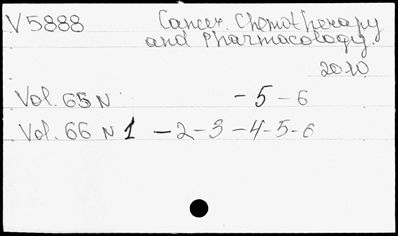 V 5888
Cancer Chemotherapy
and Pharmacology.
2010
Vol. 65 N - 5 - 6
Vol. 66 N 1 - 2 - 3 - 4 - 5 - 6